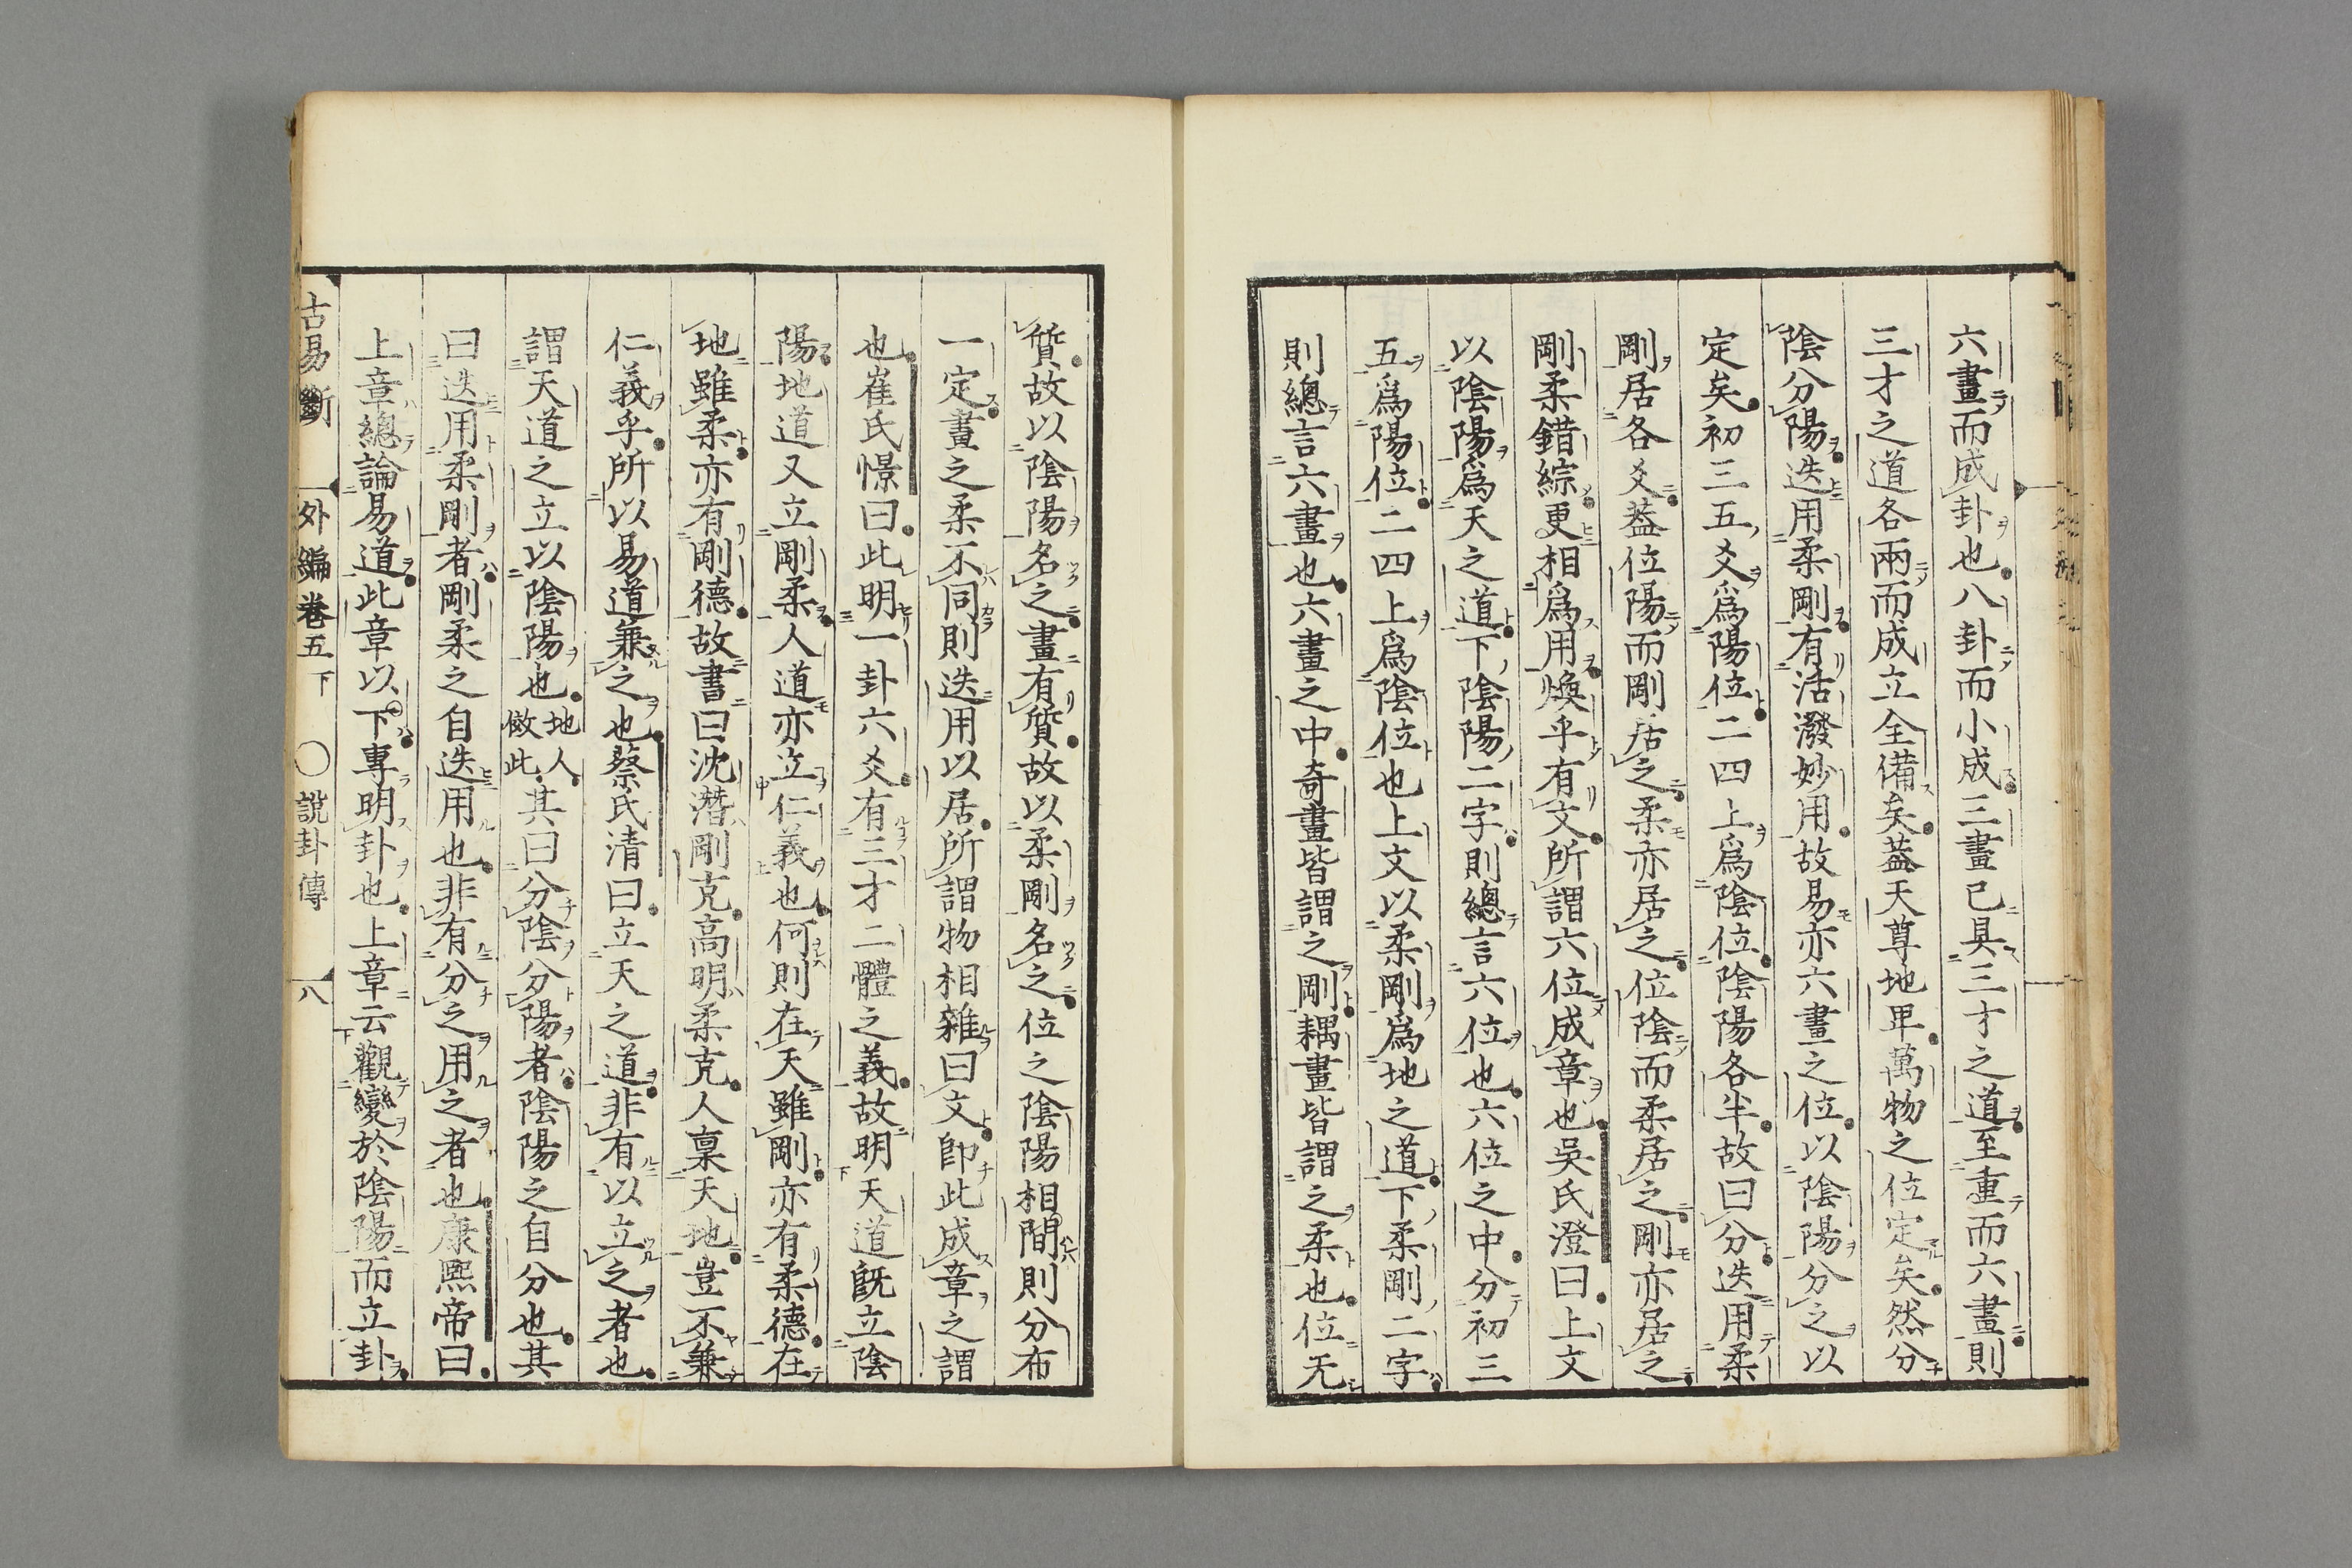 六畫而成卦也八卦而小成三畫已具三才之道至重而六畫則
三才之道各兩而成立全備矣蓋天尊地卑萬物之位定矣然分
陰分陽迭用柔剛有活潑妙用故易亦六畫之位以陰陽分之以
定矣初三五爻爲陽位二四上爲陰位陰陽各半故曰分迭用柔
剛居各爻蓋位陽而剛居之柔亦居之位陰而柔居之剛亦居之
剛柔錯綜更相爲用煥乎有文所謂六位成章也吳氏澄曰上文
以陰陽爲天之道下陰陽二字則總言六位也六位之中分初三
五爲陽位二四上爲陰位也上文以柔剛爲地之道下柔剛二字
則總言六畫也六畫之中奇畫皆謂之剛耦畫皆謂之柔也位无
質故以陰陽名之畫有質故以柔剛名之位之陰陽相間則分布
一定畫之柔不同則迭用以居所謂物相雜曰文卽此成章之謂
也崔氏憬曰此明一卦六爻有三才二體之義故明天道旣立陰
陽地道又立剛柔人道亦立仁義也何則在天雖剛亦有柔德在
地雖柔亦有剛德故書曰沈潛剛克高明柔克人稟天地豈不兼
仁義乎所以易道兼之也蔡氏清曰立天之道非有以立之者也
謂天道之立以陰陽也地人倣此其曰分陰分陽者陰陽之自分也其
曰迭用柔剛者剛柔之自迭用也非有分之用之者也康熙帝曰
上章總論易道此章以下專明卦也上章云觀變於陰陽而立卦
古易斷 外編卷五下 〇 說卦傳 八